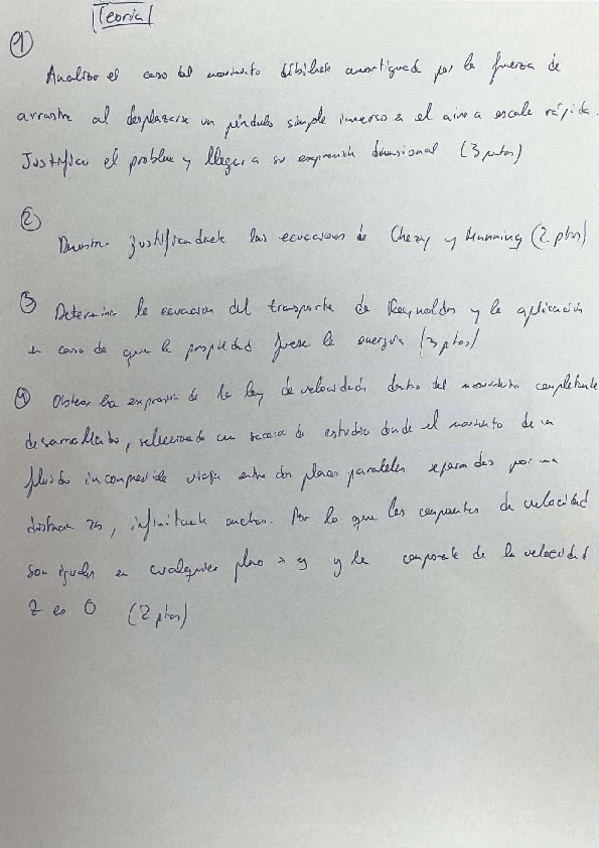 Teoría
①
Analizar el caso del movimiento débilmente amortiguado por la fuerza de
arrastre al desplazarse un péndulo simple inmerso en el aire a escala rápida.
Justificar el problema y llegar a su expresión dimensional (3 puntos)
②
Demostrar justificadamente las ecuaciones de Chezy y Manning (2 ptos)
③ Determinar la ecuación del transporte de Reynolds y la aplicación
en caso de que la propiedad fuese la energía (3 ptos)
④ Obtener la expresión de la ley de velocidades dentro del movimiento completamente
desarrollado, seleccionada una sección de estudio donde el movimiento de un
fluido incompresible viaja entre dos placas paralelas separadas por una
distancia, infinitamente anchas. Por lo que las componentes de velocidad
son iguales en cualquier plano y la componente de la velocidad
Z es 0 (2 ptos)